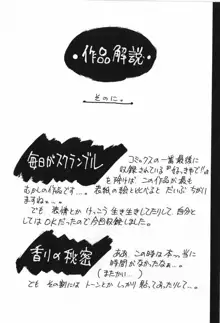 ・作品解説・
その に。
毎日がスクランブル
コミックスの一番最後に
収録されている"好きやで"
を除けば この作品が最も
むかしの作品です…。表紙の絵と比べると だいぶ ちがい
ますねぇ…。
でも 表情とか けっこう 生き生きしてたりして 自分と
してはOKだったので今回収録しました。
香りの秘密
ああ、この時は本っ当に
時間がなかったなぁ…。
(またかい…)
でも その割には トーンとか しっかり 貼ってあったりして…。